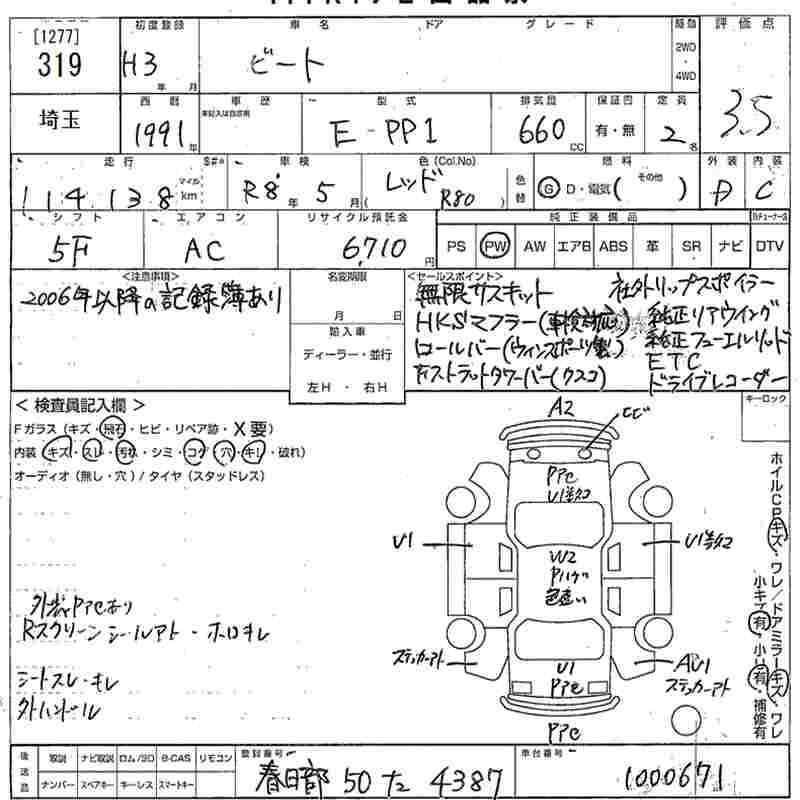 [1277]
319
初度登録 車名 ドア グレード 駆動 評価点
H3 年 月 ビート 2WD ・ 4WD 3.5
埼玉
西暦 車歴 型式 排気量 保証書 定員
未記入は自家用
1991 年 E-PP1 660 CC 有・無 2 名
走行 S#* 車検 色(Col.No) 燃料 外装 内装
114,138 マイル km R8 年 5 月 (レッド R80) 色替 G D・電気( その他 ) D C
シフト エアコン リサイクル預託金 純正装備品
5F AC 6,710 円 PS PW AW エアB ABS 革 SR ナビ DTV
<注意事項>
2006年以降の記録簿あり
名変期限
月 日
輸入車
ディーラー・並行
左H ・ 右H
<セールスポイント>
無限サスキット 社外リップスポイラー
HKSマフラー(車検対応) 純正リアウイング
ロールバー(ウィンズポーツ製) 純正フューエルリッド
ETC
ストラットタワーバー(クスコ) ドライブレコーダー
キーロック
<検査員記入欄>
Fガラス(キズ・飛石・ヒビ・リペア跡・X要)
内装(キズ・スレ・汚れ・シミ・コゲ・穴・キレ・破れ)
オーディオ(無し・穴)/タイヤ(スタッドレス)
A2
ヒビ
PPC
U1
U1
W2
Pハゲ
色違い
ステッカーアト
U1
PPC
AU1
ステッカーアト
PPC
外装PPCあり
Rスクリーンシールアト・ホロキレ
シートスレ・キレ
外ハンドル
ホイルCPキズ、ワレ/ドアミラーキズ、ワレ
小キズ有・小凹有・補修有
後送品 取説 ナビ取説 ロム/SD B-CAS リモコン
ナンバー スペアキー キーレス スマートキー
登録番号
春日部 50 た 4387
車台番号
1000671